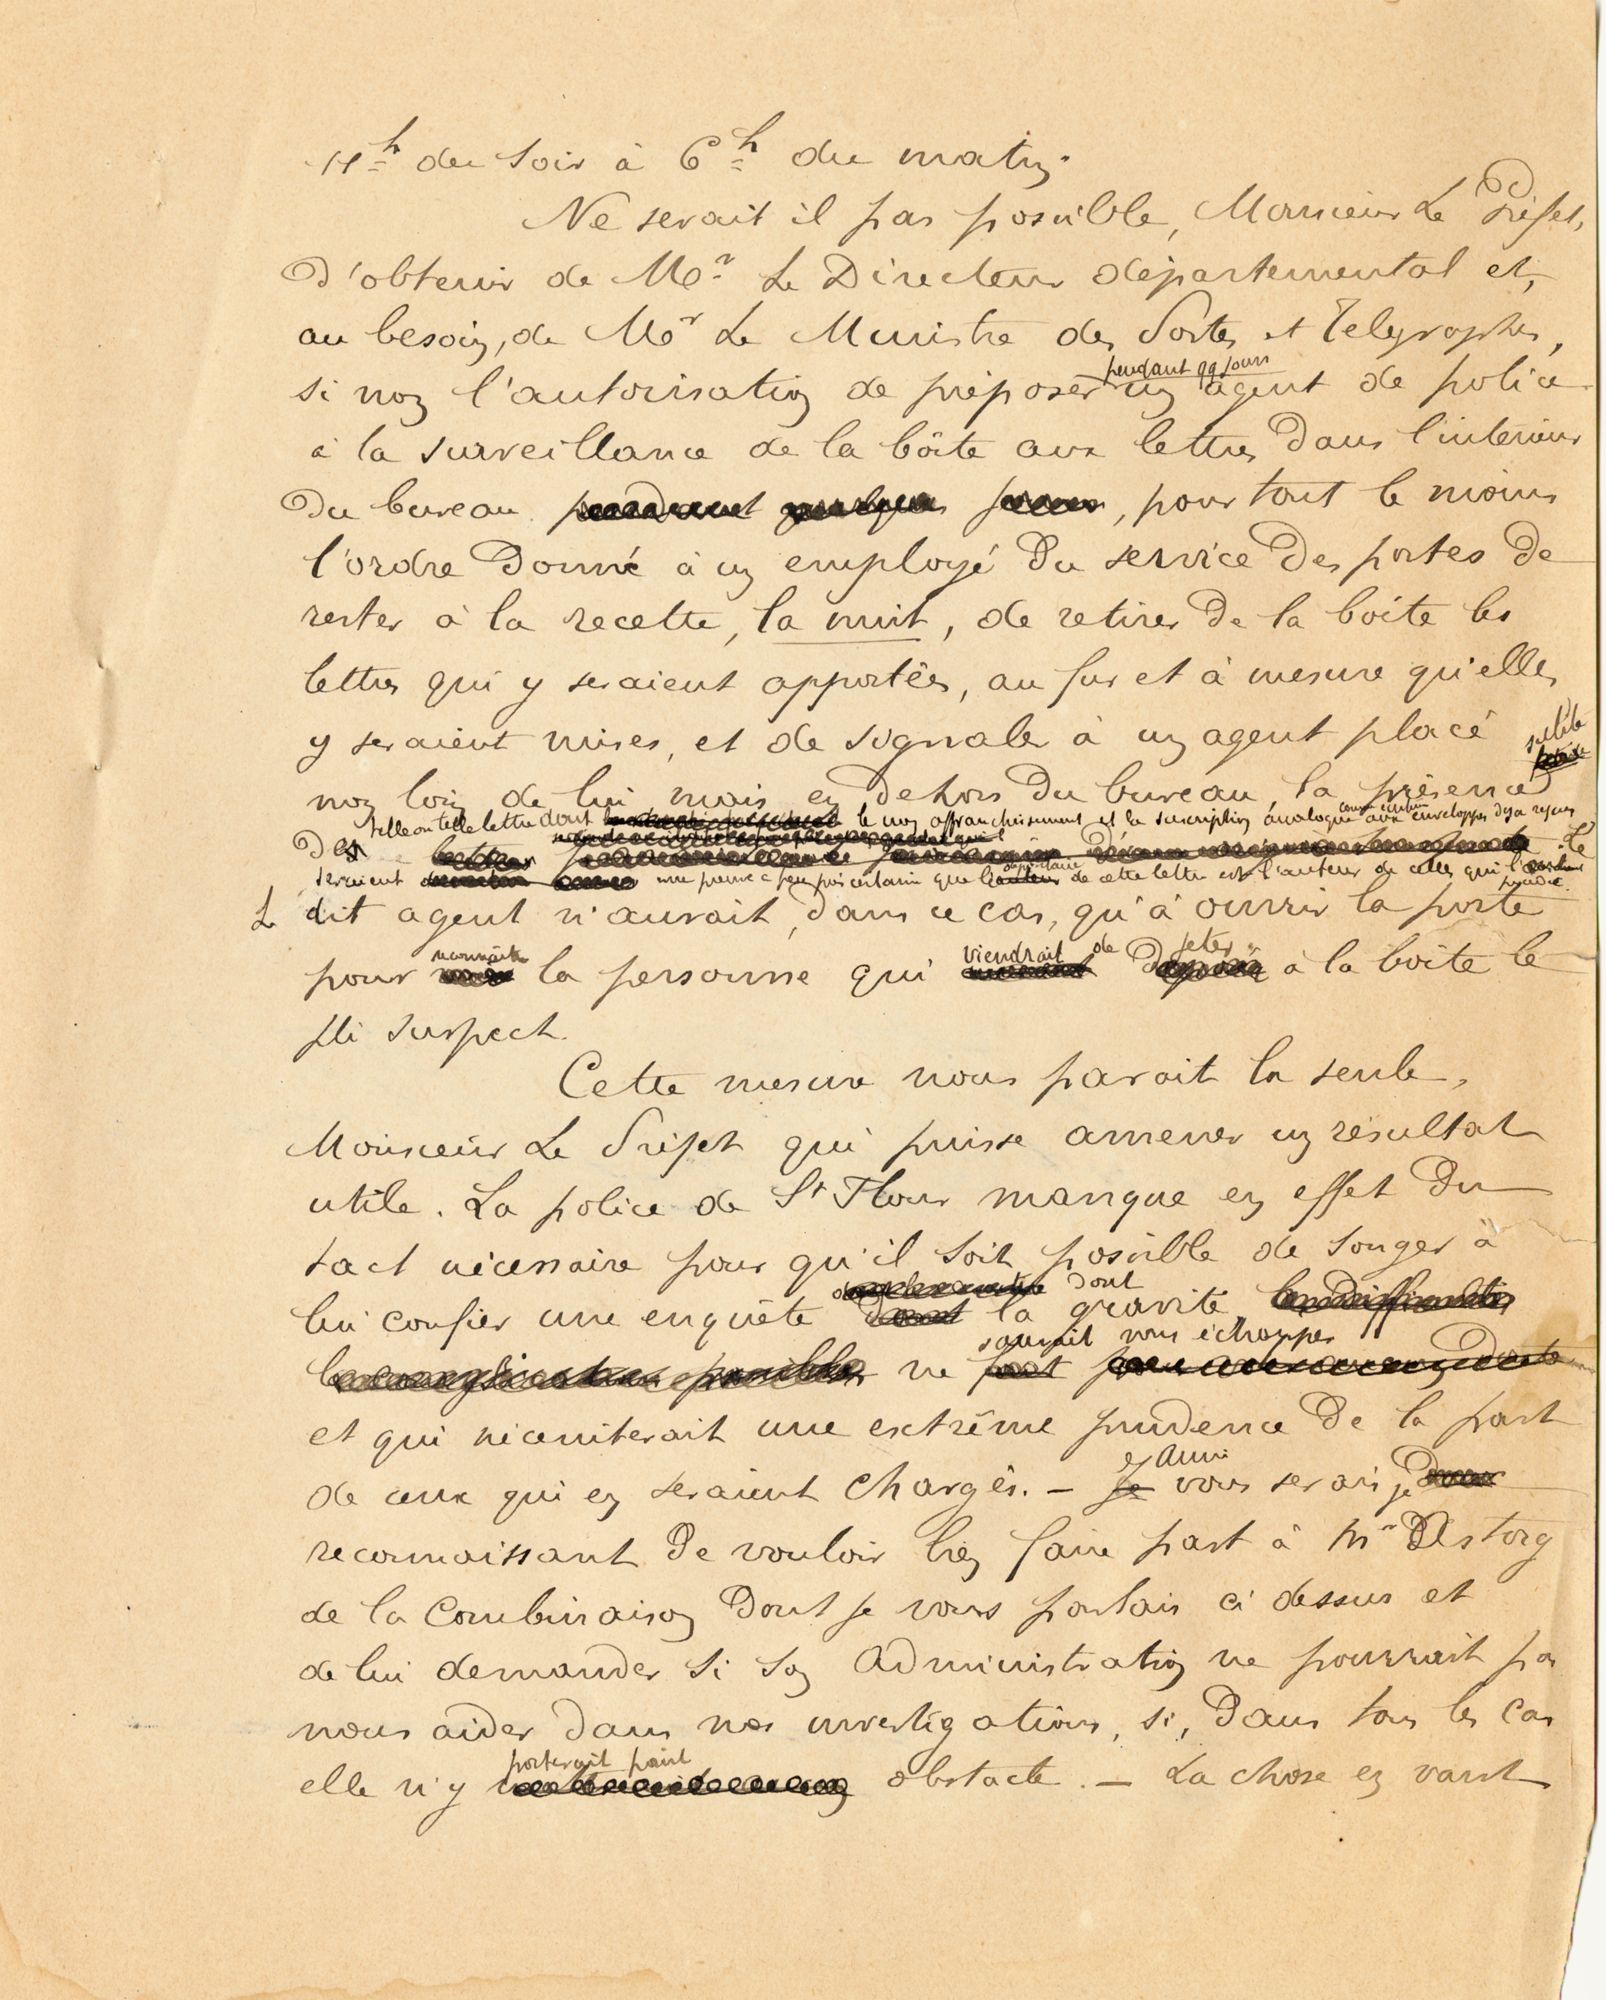 11h du soir à 6h du matin.
Ne serait il pas possible, Monsieur Le Préfet,
d'obtenir de Mr Le Directeur départemental et,
au besoin, de Mr Le Ministre des Postes et Télégraphes,
pendant qq jours
si non l'autorisation de préposer un agent de police
à la surveillance de la boîte aux lettres dans l'intérieur
du bureau pendant quelques jours, pour tout le moins
l'ordre donné à un employé du service des postes de
rester à la recette, la nuit, de retirer de la boîte les
lettres qui y seraient apportées, au fur et à mesure qu'elles
y seraient mises, et de signaler à un agent placé
subite
non loin de lui, mais en dehors du bureau, la présence
telle ou telle lettre dont le non affranchissement et la suscription analogue aux enveloppes déja reçues
de lettres Le
seraient une preuve à peu près certaine que de cette lettre est l'auteur de celles qui l'
dit agent n'aurait, dans ce cas, qu'à ouvrir la porte
reconnaître viendrait de jeter
pour la personne qui à la boîte le
pli suspect.
Cette mesure nous parait la seule,
Monsieur Le Préfet qui puisse amener un résultat
utile. La police de St Flour manque en effet du
tact nécessaire pour qu'il soit possible de songer à
dont
lui confier une enquête dont la gravité les difficultés
saurait vous échapper
les complications possibles ne peut
et qui nécessiterait une extrême prudence de la part
aussi
de ceux qui en seraient chargés. – Je vous serais je
reconnaissant de vouloir bien faire part à Mr d'Astorg
de la combinaison dont je vous parlais ci dessus et
de lui demander si son administration ne pourrait pas
nous aider dans nos investigations, si, dans tous les cas
porterait point
elle n'y obstacle. – La chose en vaut